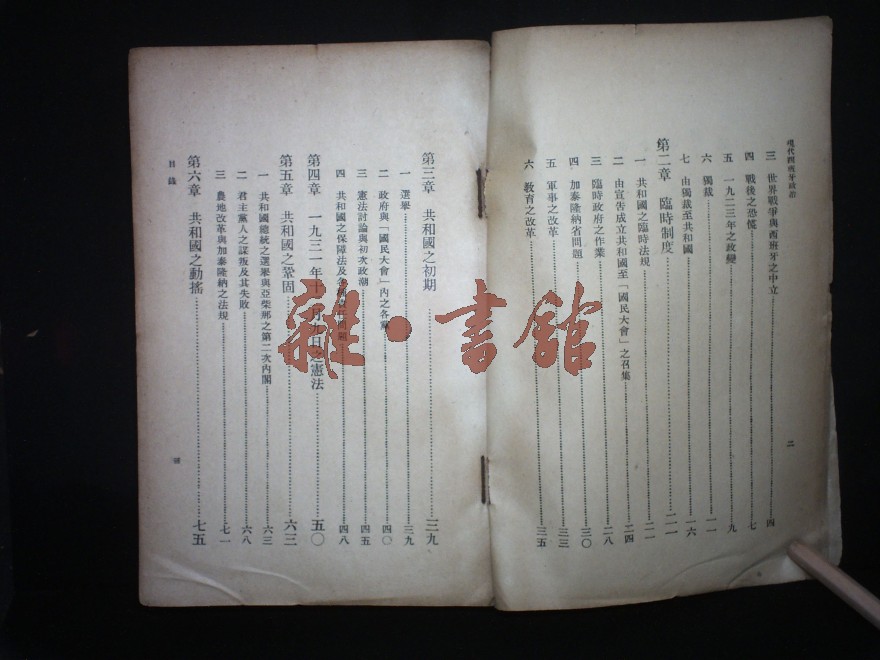 現代西班牙政治
三 世界戰爭與西班牙之中立……四
四 戰後之恐慌……七
五 一九二三年之政變……九
六 獨裁……一一
七 由獨裁至共和國……一六
第二章 臨時制度……二一
一 共和國之臨時法規……二一
二 由宣告成立共和國至「國民大會」之召集……二四
三 臨時政府之作業……二八
四 加泰隆納省問題……三〇
五 軍事之改革……三三
六 教育之改革……三五
二
第三章 共和國之初期……三九
一 選舉……三九
二 政府與「國民大會」內之各黨……四〇
三 憲法討論與初次政潮……四五
四 共和國之保障法及……四八
第四章 一九三一年十 月九日之憲法……五〇
第五章 共和國之鞏固……六三
一 共和國總統之選舉與亞柴那之第二次內閣……六三
二 君主黨人之謀叛及其失敗……六八
三 農地改革與加泰隆納之法規……七一
第六章 共和國之動搖……七五
目錄
雜·書館